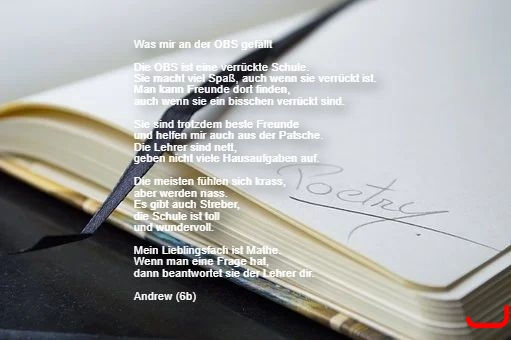 Was mir an der OBS gefällt
Die OBS ist eine verrückte Schule.
Sie macht viel Spaß, auch wenn sie verrückt ist.
Man kann Freunde dort finden,
auch wenn sie ein bisschen verrückt sind.
Sie sind trotzdem beste Freunde
und helfen mir auch aus der Patsche.
Die Lehrer sind nett,
geben nicht viele Hausaufgaben auf.
Die meisten fühlen sich krass,
aber werden nass.
Es gibt auch Streber,
die Schule ist toll
und wundervoll.
Mein Lieblingsfach ist Mathe.
Wenn man eine Frage hat,
dann beantwortet sie der Lehrer dir.
Andrew (6b)
Poetry